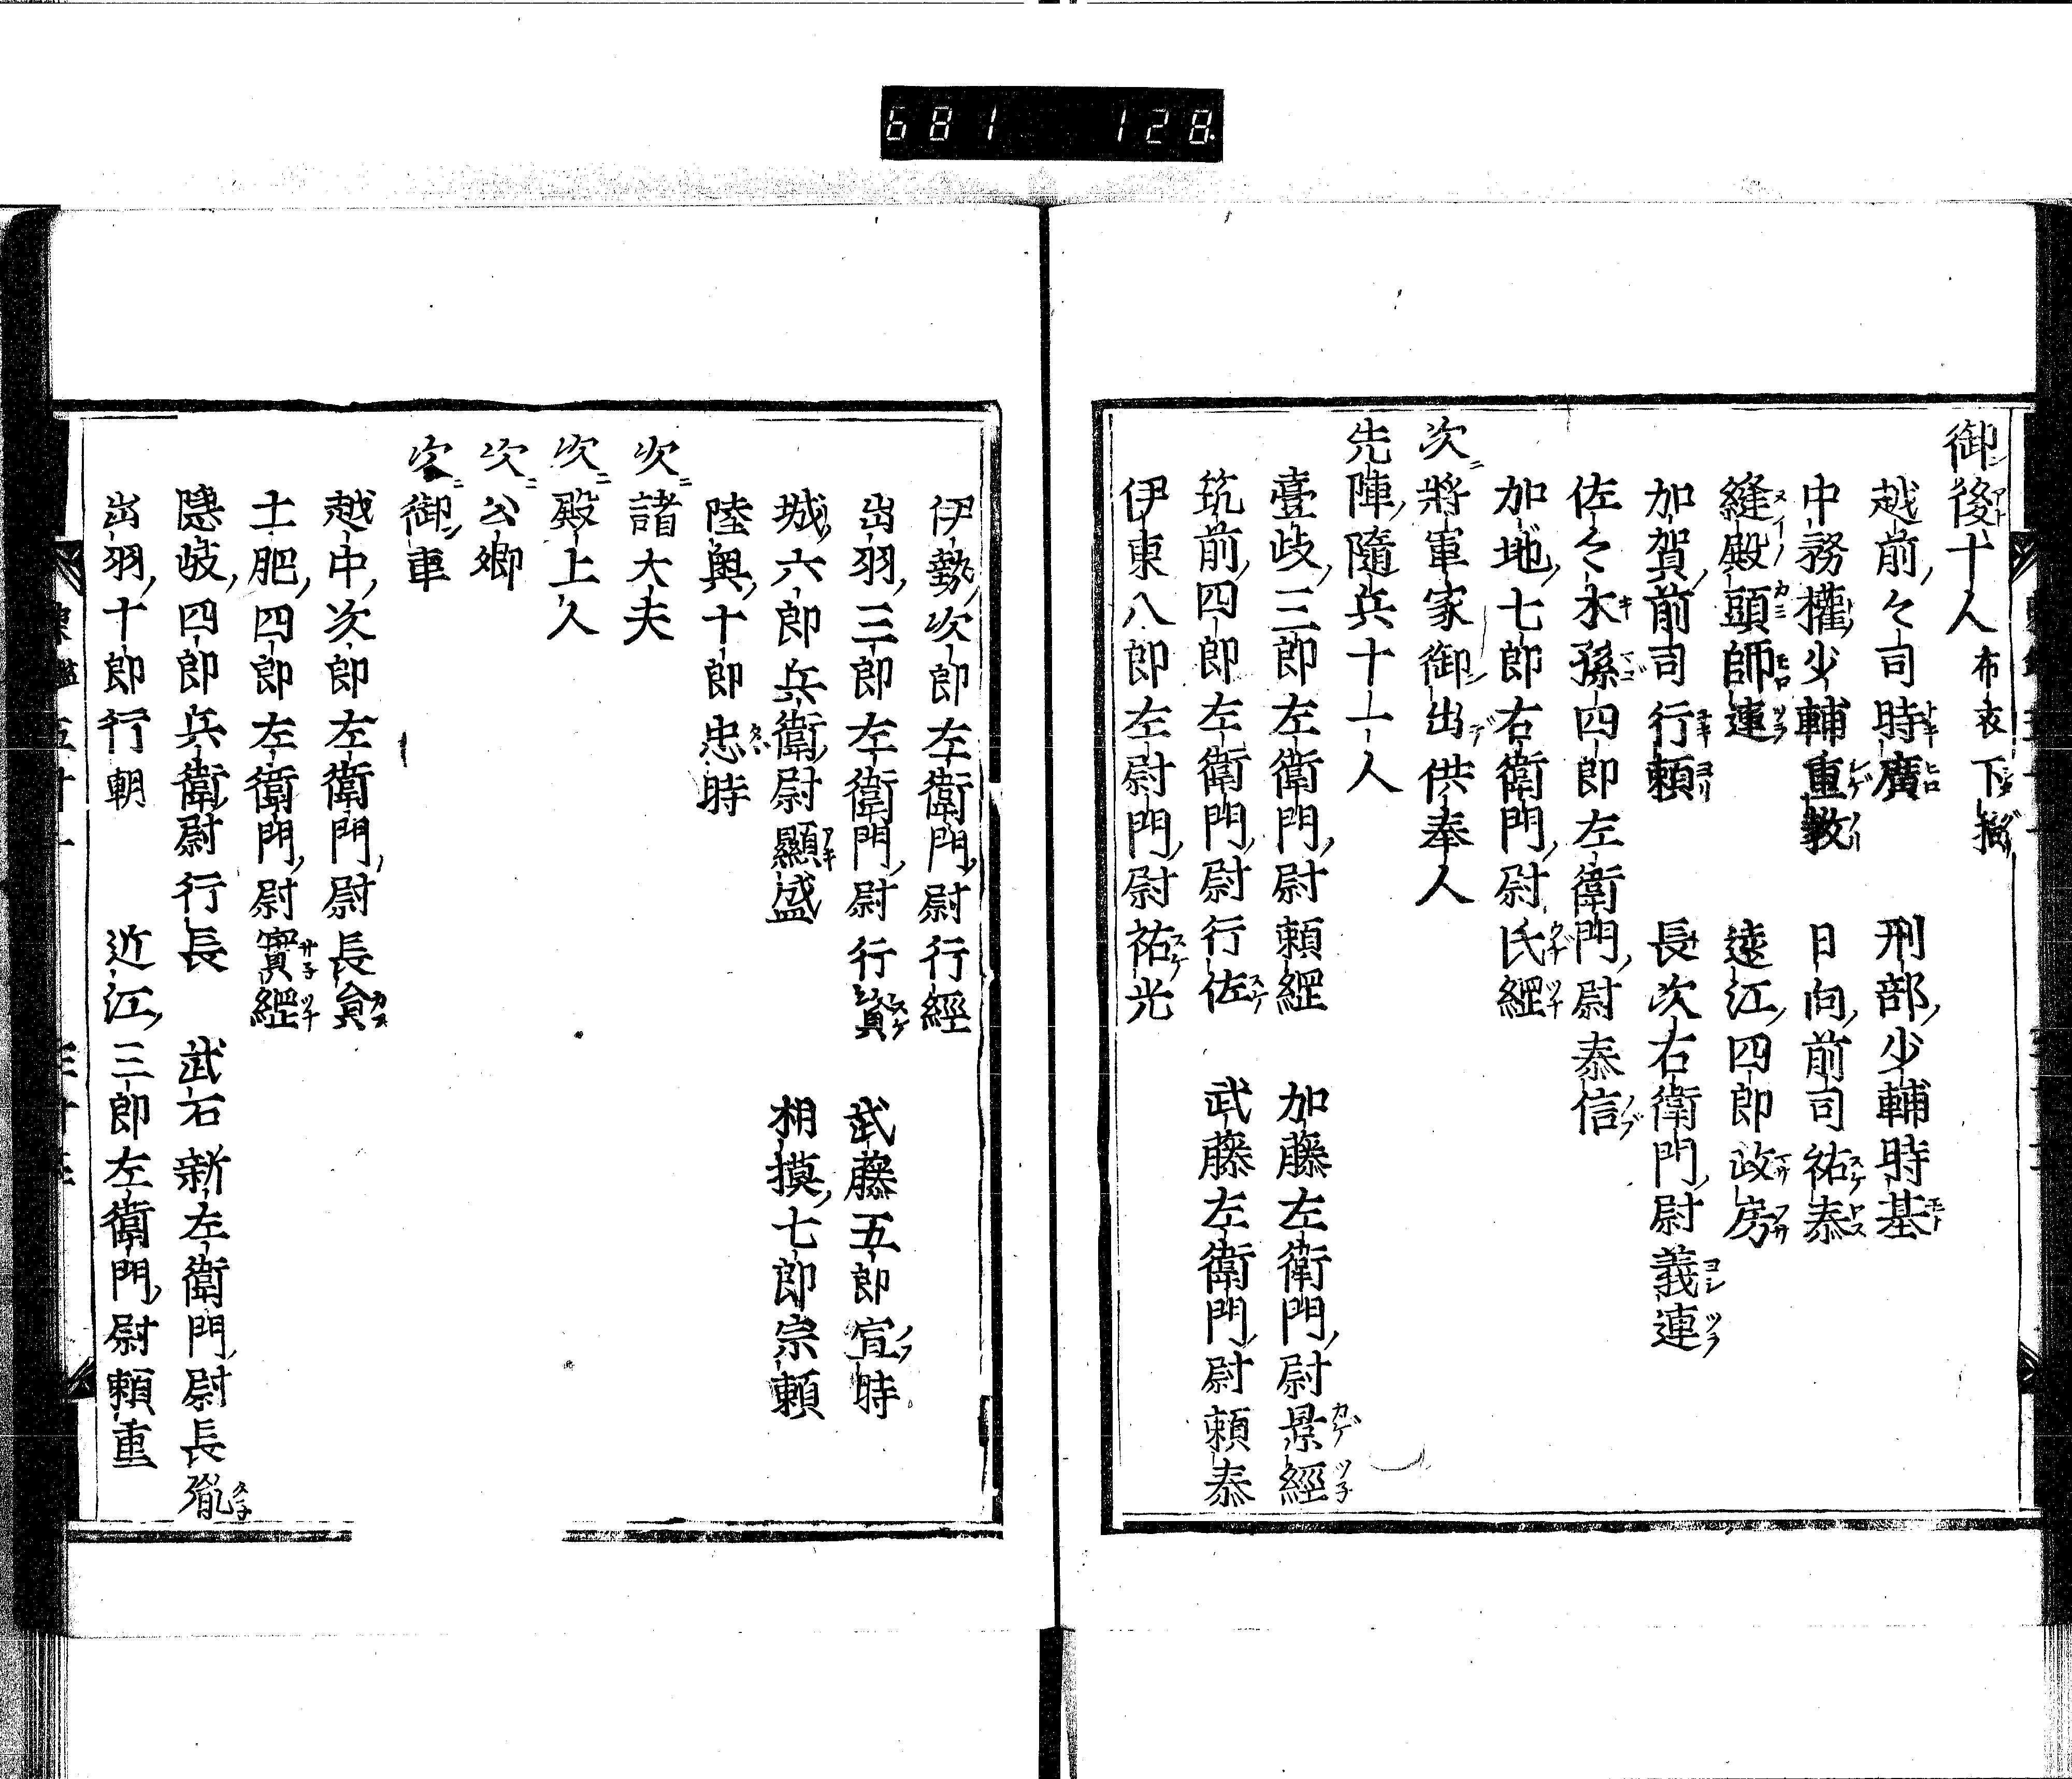 681 128
御後十人布衣下括
越前々司時廣 刑部少輔時基
中務權少輔重教 日向前司祐泰
縫殿頭師連 遠江四郎政房
加賀前司行頼 長次右衛門尉義連
佐々木孫四郎左衛門尉泰信
加地七郎右衛門尉氏經
次ニ將軍家御出供奉人
先陣隨兵十一人
壹岐三郎左衛門尉頼經 加藤左衛門尉景經
筑前四郎左衛門尉行佐 武藤左衛門尉頼泰
伊東八郎左衛門尉祐光
伊勢次郎左衛門尉行經
出羽三郎左衛門尉行資 武藤五郎宣時
城六郎兵衛尉顯盛 相摸七郎宗頼
陸奥十郎忠時
次ニ諸大夫
次ニ殿上人
次ニ公卿
次ニ御車
越中次郎左衛門尉長員
土肥四郎左衛門尉實經
隱岐四郎兵衛尉行長 武石新左衛門尉長胤
出羽十郎行朝 近江三郎左衛門尉頼重